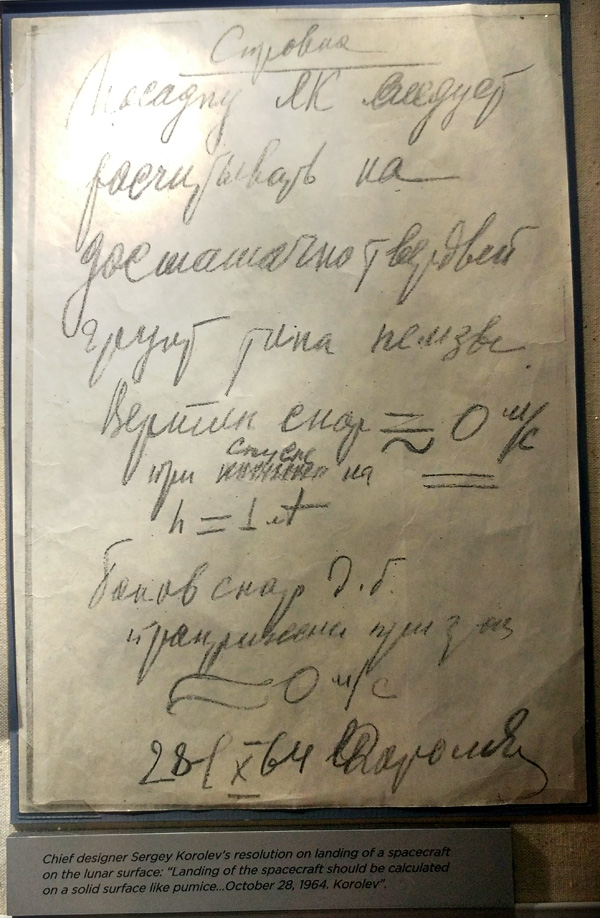 Справка
Посадку ЛК следует
расчитывать на
достаточно твердый
грунт типа пемзы
Вертик скор ≈ 0 м/с
при спуске на
h = 1 м
скор д.б.
при
≈ 0 м/с
28/X 64 Королев
Chief designer Sergey Korolev's resolution on landing of a spacecraft
on the lunar surface: "Landing of the spacecraft should be calculated
on a solid surface like pumice...October 28, 1964. Korolev".